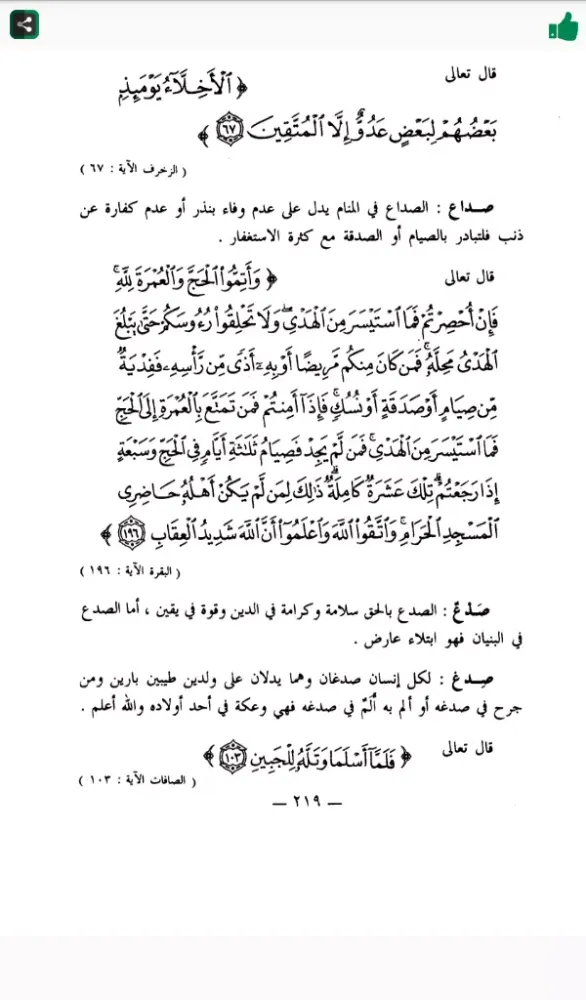 قال تعالى ﴿ ٱلْأَخِلَّآءُ يَوْمَئِذٍۭ
بَعْضُهُمْ لِبَعْضٍ عَدُوٌّ إِلَّا ٱلْمُتَّقِينَ ۝٦٧ ﴾
( الزخرف الآية : ٦٧ )
صداع : الصداع في المنام يدل على عدم وفاء بنذر أو عدم كفارة عن
ذنب فلتبادر بالصيام أو الصدقة مع كثرة الاستغفار .
قال تعالى ﴿ وَأَتِمُّوا۟ ٱلْحَجَّ وَٱلْعُمْرَةَ لِلَّهِ ۚ
فَإِنْ أُحْصِرْتُمْ فَمَا ٱسْتَيْسَرَ مِنَ ٱلْهَدْىِ ۖ وَلَا تَحْلِقُوا۟ رُءُوسَكُمْ حَتَّىٰ يَبْلُغَ
ٱلْهَدْىُ مَحِلَّهُۥ ۚ فَمَن كَانَ مِنكُم مَّرِيضًا أَوْ بِهِۦٓ أَذًى مِّن رَّأْسِهِۦ فَفِدْيَةٌ
مِّن صِيَامٍ أَوْ صَدَقَةٍ أَوْ نُسُكٍ ۚ فَإِذَآ أَمِنتُمْ فَمَن تَمَتَّعَ بِٱلْعُمْرَةِ إِلَى ٱلْحَجِّ
فَمَا ٱسْتَيْسَرَ مِنَ ٱلْهَدْىِ ۚ فَمَن لَّمْ يَجِدْ فَصِيَامُ ثَلَٰثَةِ أَيَّامٍ فِى ٱلْحَجِّ وَسَبْعَةٍ
إِذَا رَجَعْتُمْ ۗ تِلْكَ عَشَرَةٌ كَامِلَةٌ ۗ ذَٰلِكَ لِمَن لَّمْ يَكُنْ أَهْلُهُۥ حَاضِرِى
ٱلْمَسْجِدِ ٱلْحَرَامِ ۚ وَٱتَّقُوا۟ ٱللَّهَ وَٱعْلَمُوٓا۟ أَنَّ ٱللَّهَ شَدِيدُ ٱلْعِقَابِ ۝١٩٦ ﴾
( البقرة الآية : ١٩٦ )
صَدْعٌ : الصدع بالحق سلامة وكرامة في الدين وقوة في يقين ، أما الصدع
في البنيان فهو ابتلاء عارض .
صِدغ : لكل إنسان صدغان وهما يدلان على ولدين طيبين بارين ومن
جرح في صدغه أو ألم به ألَمٌ في صدغه فهي وعكة في أحد أولاده والله أعلم .
قال تعالى ﴿ فَلَمَّآ أَسْلَمَا وَتَلَّهُۥ لِلْجَبِينِ ۝١٠٣ ﴾
( الصافات الآية : ١٠٣ )
— ٢١٩ —